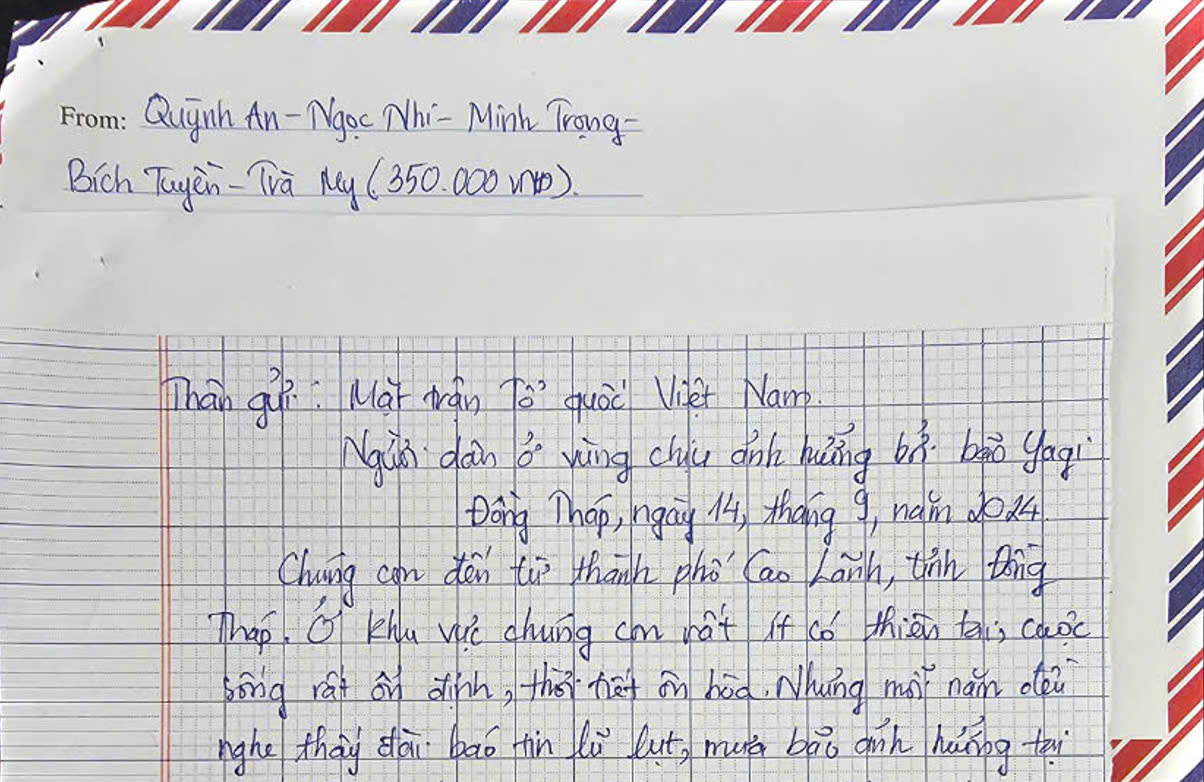 From: Quỳnh An - Ngọc Nhi - Minh Trọng -
Bích Tuyền - Trà My (350.000 VNĐ).
Thân gửi: Mặt trận Tổ quốc Việt Nam.
Người dân ở vùng chịu ảnh hưởng bởi bão Yagi
Đồng Tháp, ngày 14, tháng 9, năm 2024.
Chúng con đến từ thành phố Cao Lãnh, tỉnh Đồng
Tháp. Ở khu vực chúng con rất ít có thiên tai, cuộc
sống rất ổn định, thời tiết ôn hòa. Nhưng mỗi năm đều
nghe thấy đài báo tin lũ lụt, mưa bão ảnh hưởng tại